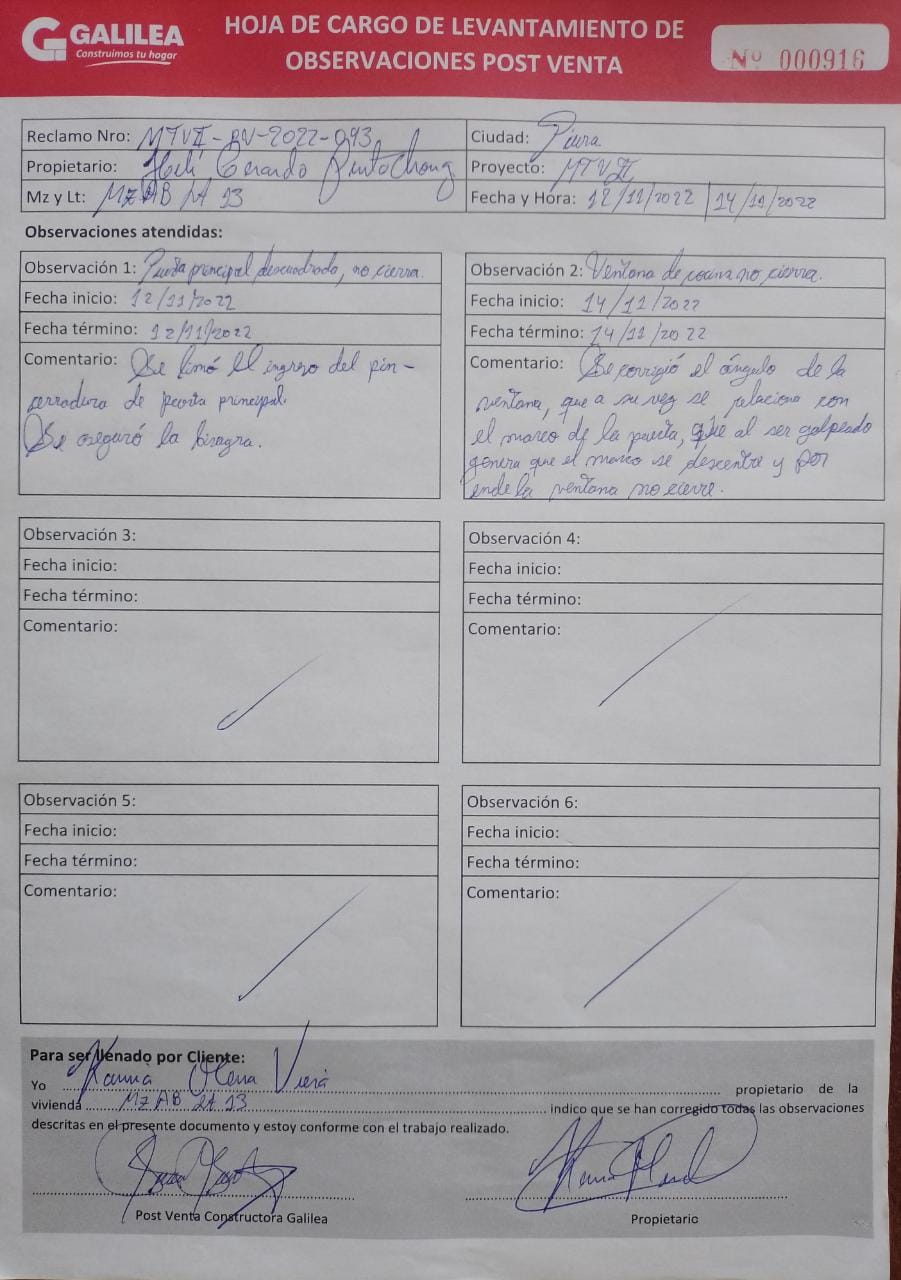 GALILEA
Construimos tu hogar
HOJA DE CARGO DE LEVANTAMIENTO DE
OBSERVACIONES POST VENTA
Nº 000916
Reclamo Nro: MTVII-PV-2022-093
Ciudad: Piura
Propietario: Helí Gerardo Pinto Chong
Proyecto: MTVII
Mz y Lt: Mz AB Lt 13
Fecha y Hora: 12/11/2022 | 14/11/2022
Observaciones atendidas:
Observación 1: Puerta principal descuadrada, no cierra.
Fecha inicio: 12/11/2022
Fecha término: 12/11/2022
Comentario: Se limó el ingreso del pin-
cerradura de puerta principal.
Se aseguró la bisagra.
Observación 2: Ventana de cocina no cierra.
Fecha inicio: 14/11/2022
Fecha término: 14/11/2022
Comentario: Se corrigió el ángulo de la
ventana, que a su vez se relaciona con
el marco de la puerta, que al ser golpeado
genera que el marco se descentre y por
ende la ventana no cierre.
Observación 3:
Fecha inicio:
Fecha término:
Comentario:
Observación 4:
Fecha inicio:
Fecha término:
Comentario:
Observación 5:
Fecha inicio:
Fecha término:
Comentario:
Observación 6:
Fecha inicio:
Fecha término:
Comentario:
Para ser llenado por Cliente:
Yo Karina Viera propietario de la
vivienda Mz AB Lt 13 indico que se han corregido todas las observaciones
descritas en el presente documento y estoy conforme con el trabajo realizado.
Post Venta Constructora Galilea
Propietario